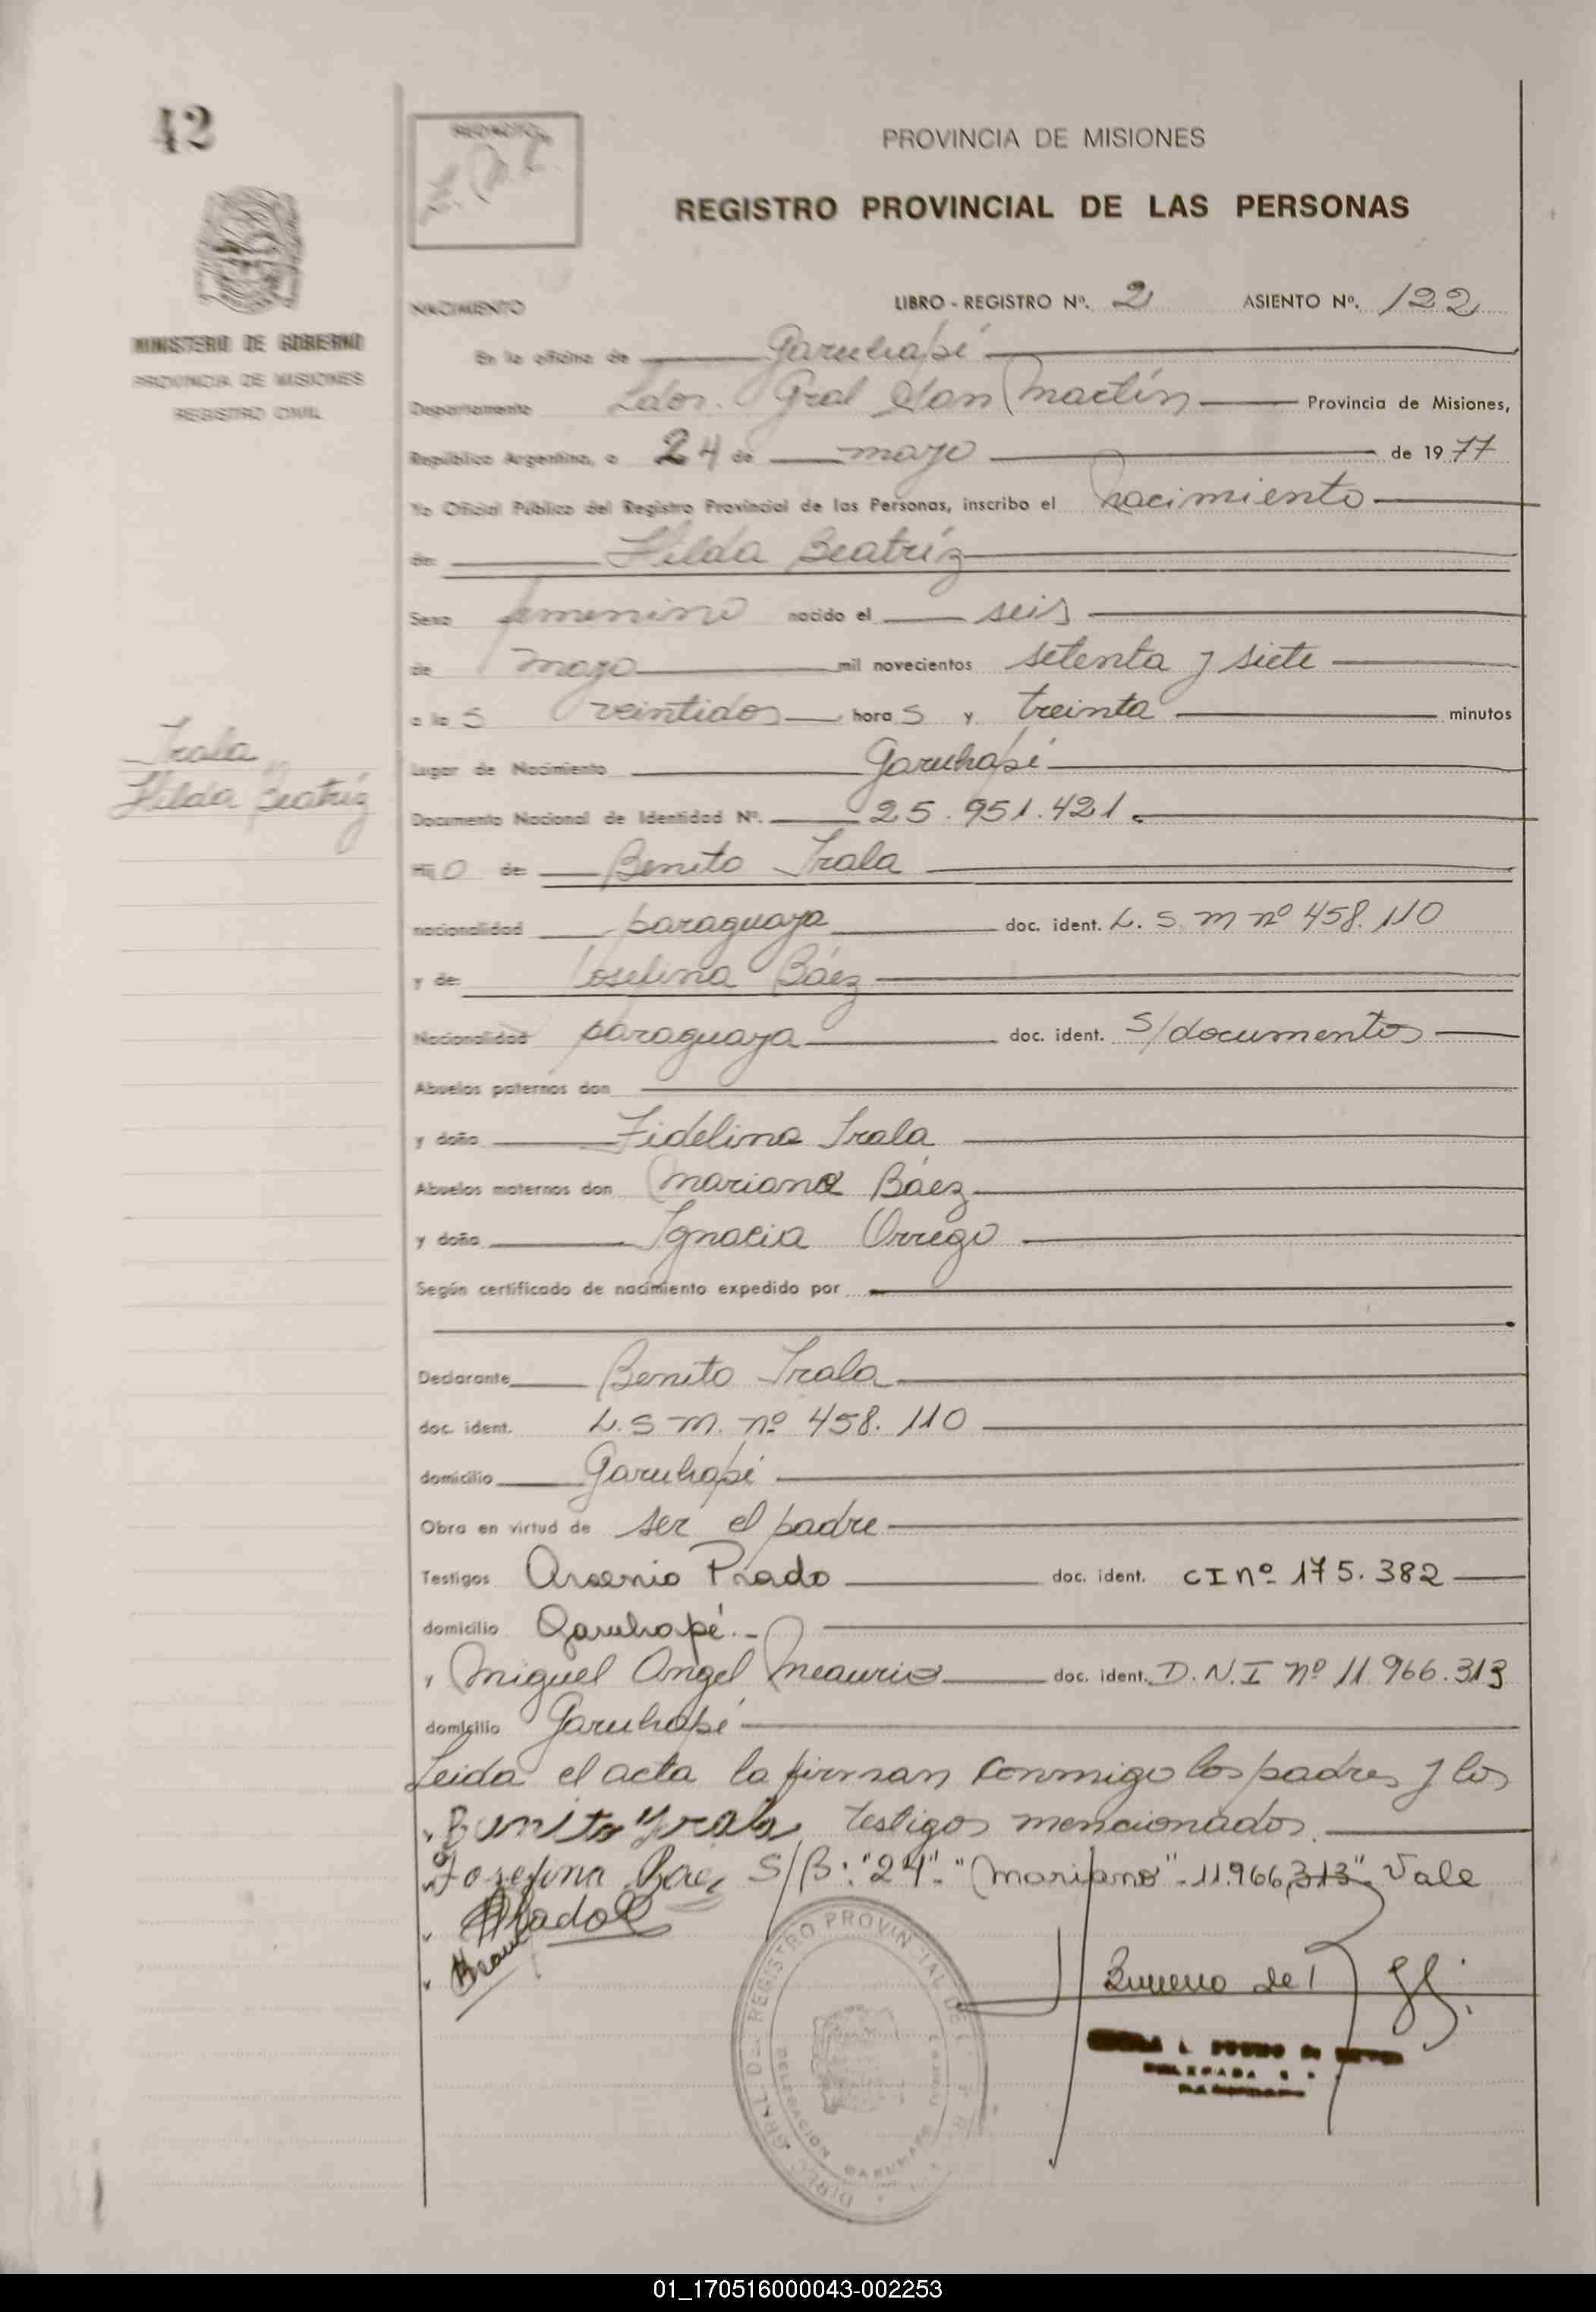 42
REDACTO
PROVINCIA DE MISIONES
REGISTRO PROVINCIAL DE LAS PERSONAS
MINISTERIO DE GOBIERNO
PROVINCIA DE MISIONES
REGISTRO CIVIL
NACIMIENTO LIBRO - REGISTRO Nº. 2 ASIENTO Nº. 122
En la oficina de Garuhapé
Departamento Ldor. Gral San Martín Provincia de Misiones,
República Argentina, a 24 de mayo de 1977
Yo Oficial Público del Registro Provincial de las Personas, inscribo el nacimiento
de: Hilda Beatríz
Sexo femenino nacido el seis
de mayo mil novecientos setenta y siete
a las veintidos horas y treinta minutos
Irala
Hilda Beatríz
Lugar de Nacimiento Garuhapé
Documento Nacional de Identidad Nº. 25.951.421.
Hijo de: Benito Irala
nacionalidad paraguaya doc. ident. L. S. M nº 458.110
y de: Josefina Báez
Nacionalidad paraguaya doc. ident. S/documentos
Abuelos paternos don
y doña Fidelina Irala
Abuelos maternos don Mariano Báez
y doña Ignacia Orrego
Según certificado de nacimiento expedido por
Declarante Benito Irala
doc. ident. L. S M. nº 458.110
domicilio Garuhapé
Obra en virtud de ser el padre
Testigos Arsenio Prado doc. ident. CI nº 175.382
domicilio Garuhapé.-
y Miguel Angel Meaurio doc. ident. D.N.I nº 11.966.313
domicilio Garuhapé
Leida el acta la firman conmigo los padres y los
Benito Yrala testigos mencionados.
Josefina Báez S/B: "24"- "Mariano"- 11.966,313" Vale
DIREC. GRAL. DEL REGISTRO PROVINCIAL DE
DELEGACION GARUHAPE
01_170516000043-002253